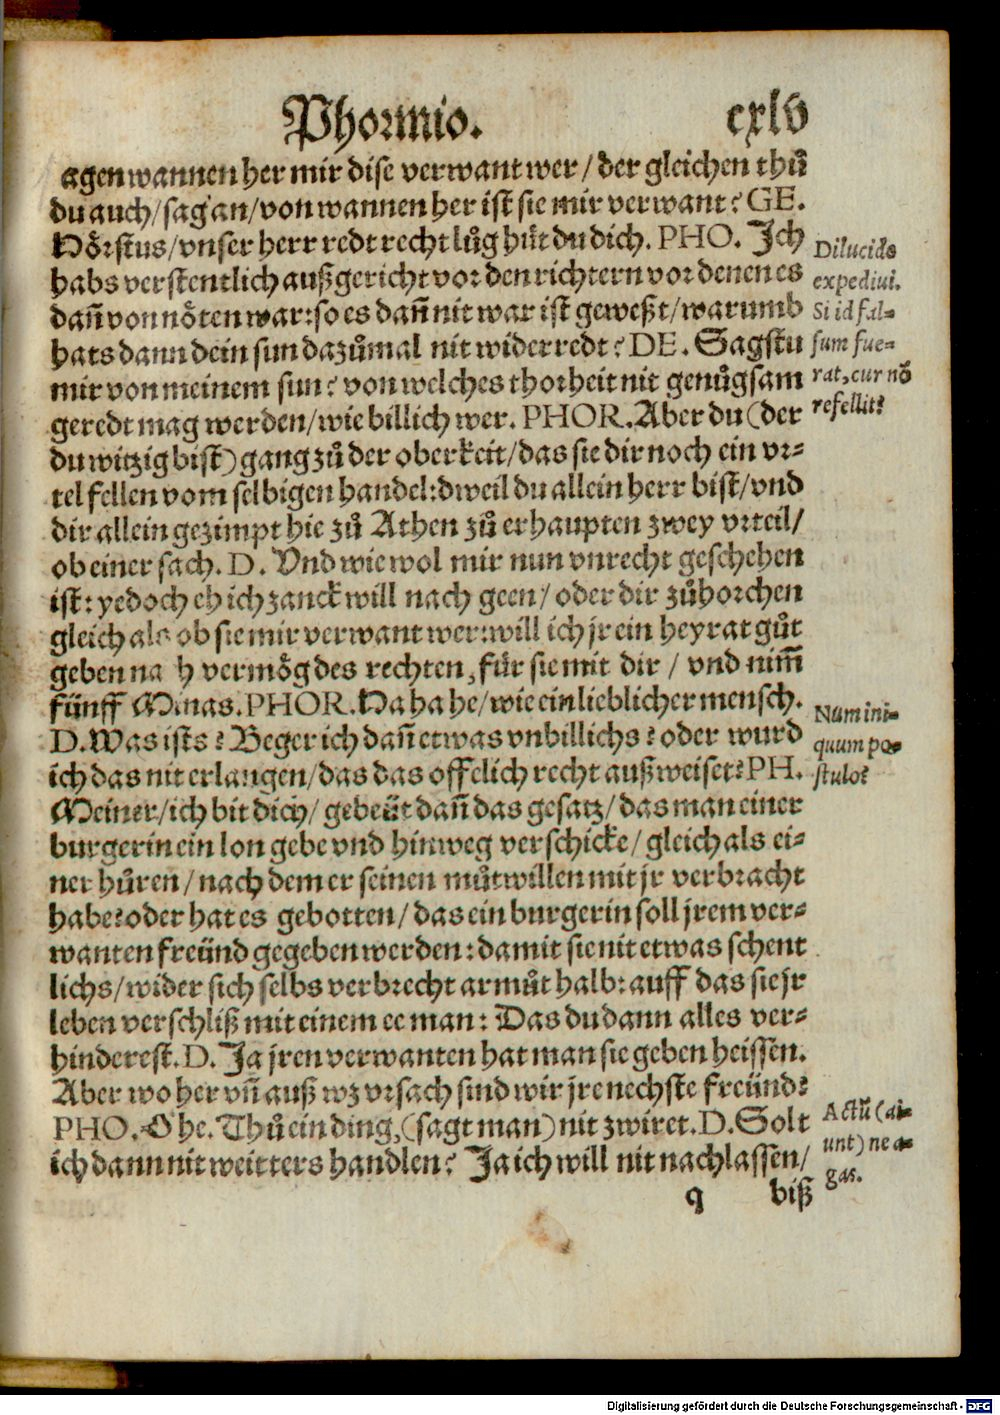 Phormio. cxlv
agen wannen her mir dise verwant wer / der gleichen thů
du auch / sag an / von wannen her ist sie mir verwant? GE.
Hörstus / vnser herr redt recht lůg hüt du dich. PHO. Ich
habs verstentlich außgericht vor den richtern vor denen es
dañ von nöten war: so es dañ nit war ist geweßt / warumb
hats dann dein sun dazůmal nit widerredt? DE. Sagstu
mir von meinem sun? von welches thorheit nit genůgsam
geredt mag werden / wie billich wer. PHOR. Aber du (der
du witzig bist) gang zů der oberkeit / das sie dir noch ein vr=
tel fellen vom selbigen handel: dweil du allein herr bist / vnd
dir allein gezimpt hie zů Athen zů erhaupten zwey vrteil /
ob einer sach. D. Vnd wie wol mir nun vnrecht geschehen
ist: yedoch eh ich zanck will nach geen / oder dir zůhorchen
gleich als ob sie mir verwant wer: will ich jr ein heyrat gůt
geben na h vermög des rechten, für sie mit dir / vnd nim̃
fünff Minas. PHOR. Ha ha he / wie ein lieblicher mensch.
D. Was ists? Beger ich dañ etwas vnbillichs? oder wurd
ich das nit erlangen / das das offelich recht außweiset? PH.
Meiner / ich bit dich / gebeüt dañ das gesatz / das man einer
burgerin ein lon gebe vnd hinweg verschicke / gleich als ei=
ner hůren / nach dem er seinen můtwillen mit jr verbracht
habe? oder hat es gebotten / das ein burgerin soll jrem ver=
wanten freünd gegeben werden: damit sie nit etwas schent
lichs / wider sich selbs verbrecht armůt halb: auff das sie jr
leben verschliß mit einem ee man: Das du dann alles ver=
hinderest. D. Ja jren verwanten hat man sie geben heissen.
Aber wo her vñ auß wz vrsach sind wir jre nechste freünd?
PHO. O he. Thů ein ding, (sagt man) nit zwiret. D. Solt
ich dann nit weitters handlen? Ja ich will nit nachlassen /
q biß
Dilucidè
expediui.
Si id fal=
sum fue=
rat, cur nō
refellit?
Num ini=
quum po=
stulo?
Actū (ai=
unt) ne a=
gas.
Digitalisierung gefördert durch die Deutsche Forschungsgemeinschaft - DFG